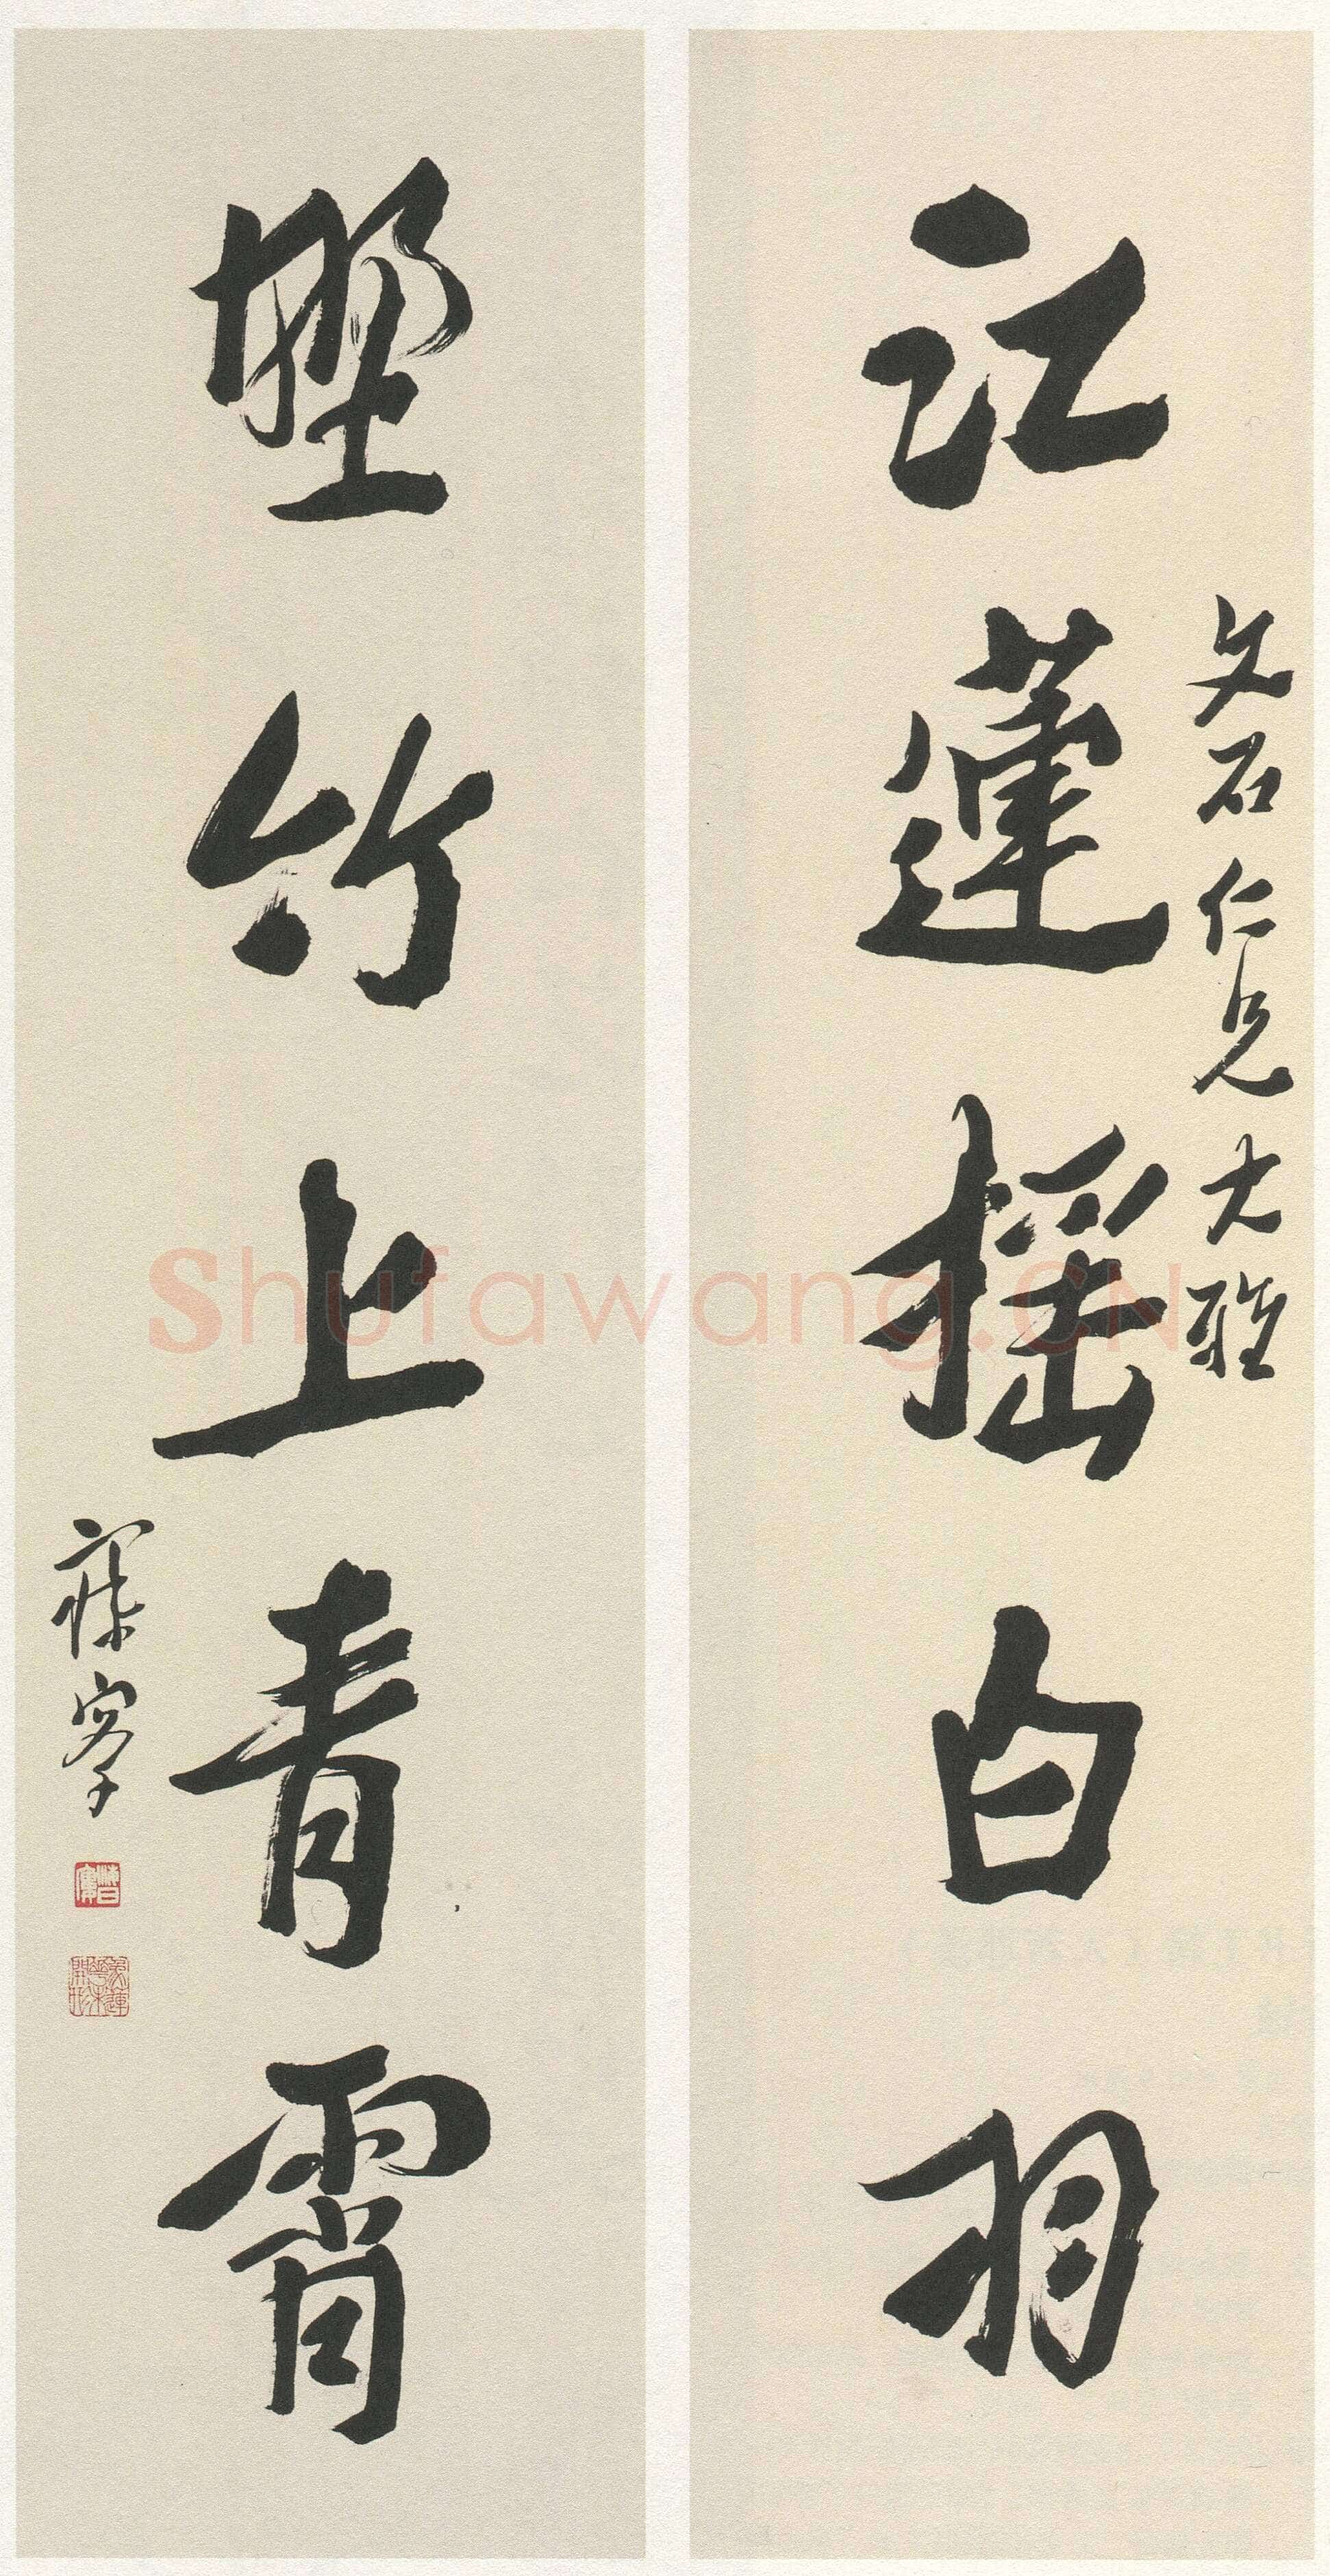 江蓮摇白羽
文石仁兄大雅
野竹上青霄
Shufawang.CN